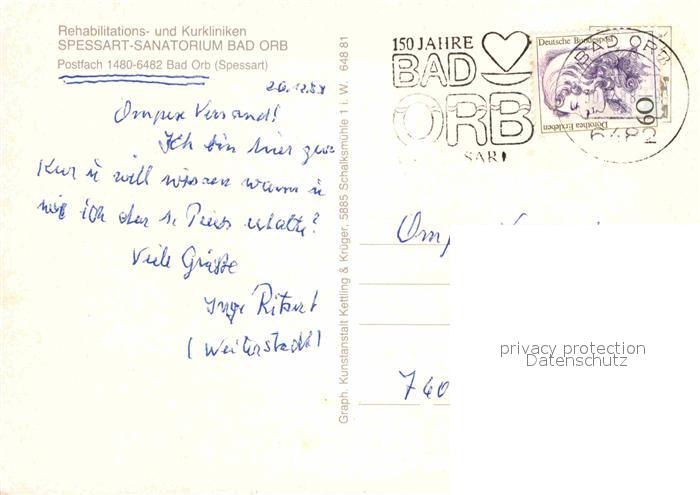 Rehabilitations- und Kurkliniken
SPESSART-SANATORIUM BAD ORB
Postfach 1480-6482 Bad Orb (Spessart)
Versand!
Ich bin hier zur
Kur u will wissen wann u
wie ich den 1. Preis erhalte?
Viele Grüße
Inge
(Weiterstadt)
Graph. Kunstanstalt Kettling & Krüger, 5885 Schalksmühle 1 i. W. 648 81
150 JAHRE
BAD
ORB
Deutsche Bundespost
60
Dorothea Erxleben
BAD ORB
6482
privacy protection
Datenschutz